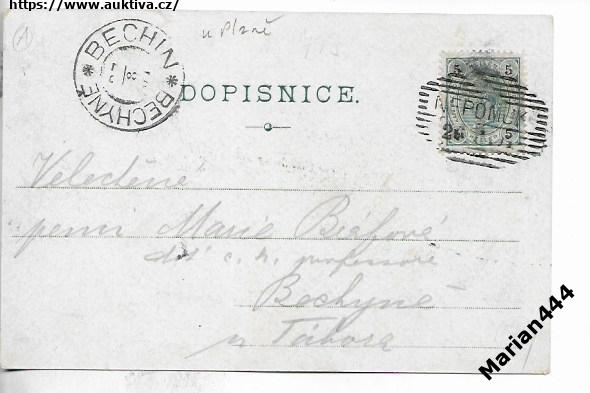 https://www.auktiva.cz/
u Plzně
BECHIN
BECHYNĚ
DOPISNICE.
5 5
NEPOMUK
5
Velectěné
paní Marie
c. k. professora
Bechyně
u Tábora
Marian444